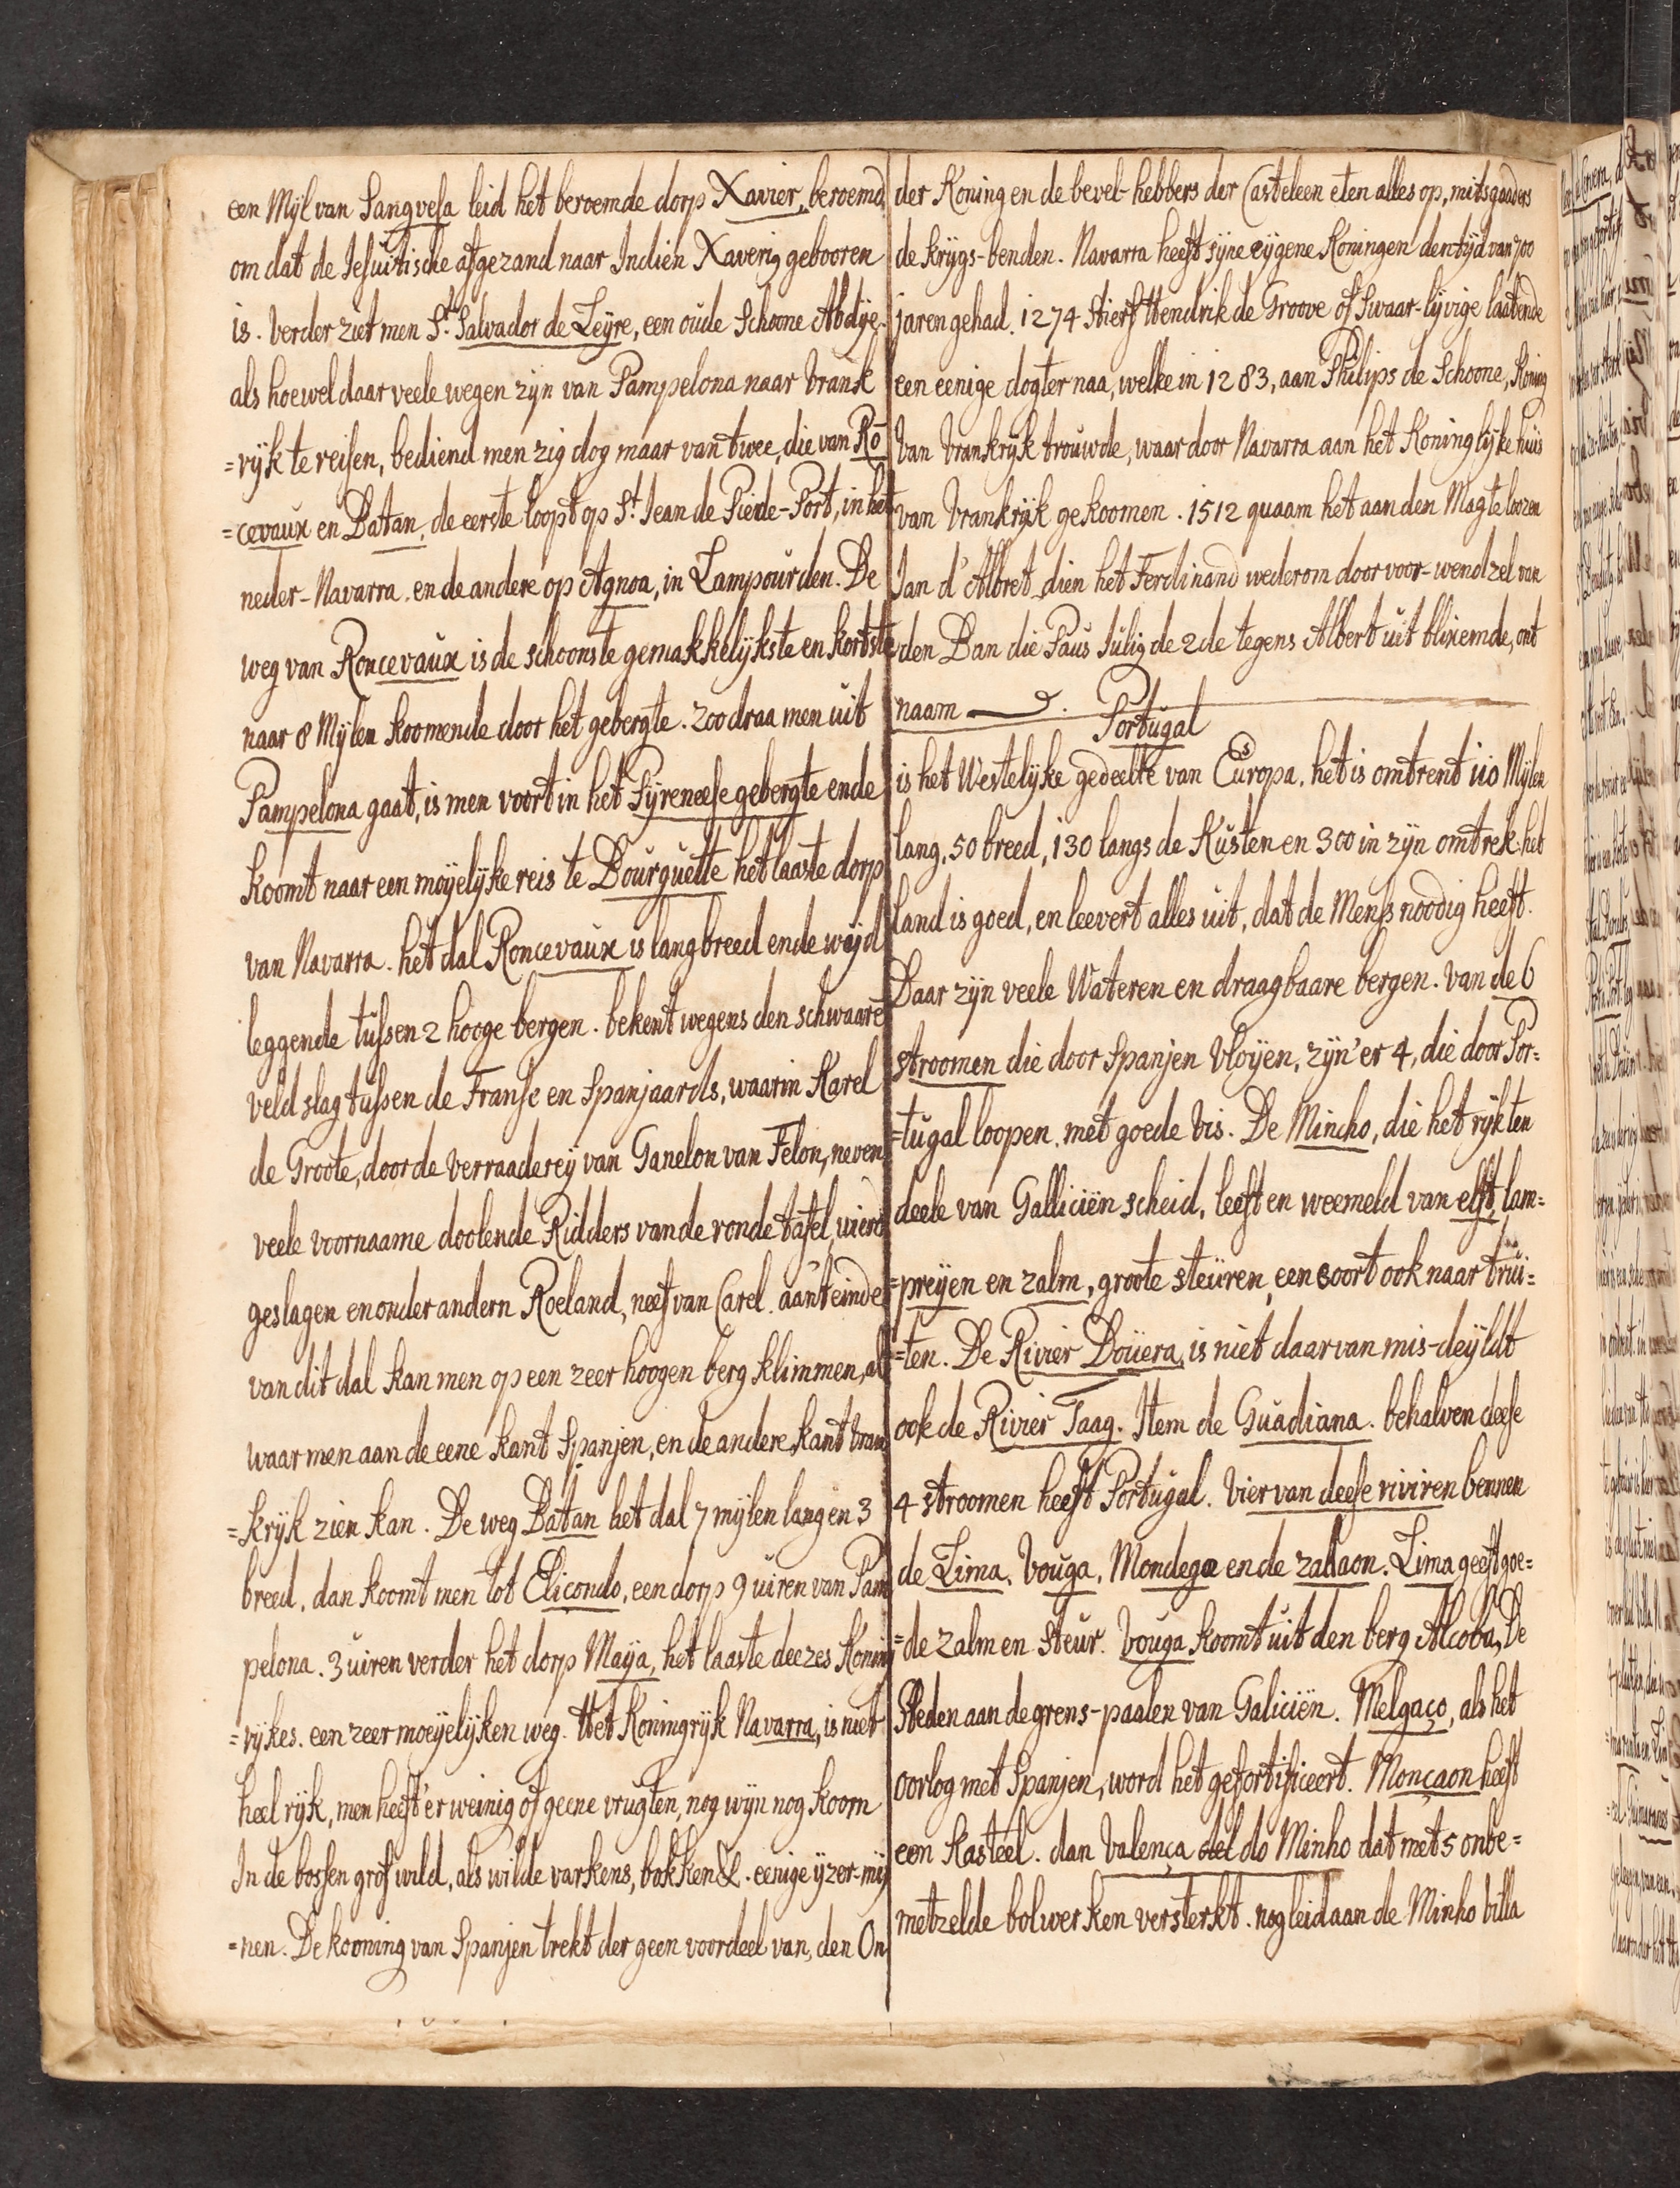 een Mijl van Sangvesa leid het beroemde dorp Xavier, beroemd
om dat de Jesuitische afgezand naar Indien Xaverig gebooren
is. verder ziet men St. Salvador de Leyre, een oude schoone Abdije.
als hoewel daar veele wegen zijn van Pampelona naar vrank
=rijk te reisen, bediend men zig dog maar van twee, die van Ro
=cevaux en Batan, de eerste loopt op St. Jean de Piede-Port, in het
neder-Navarra. en de andere op Agnoa, in Lampourden. De
weg van Roncevaux is de schoonste gemakkelijkste en kortste
naar 8 Mijlen koomende door het gebergte. zoodraa men uit
Pampelona gaat, is men voort in het Pijreneese gebergte ende
koomt naar een moijelijke reis te Bourguette het laaste dorp
van Navarra. het dal Roncevaux is lang breed ende wijd
leggende tussen 2 hooge bergen. bekent wegens den schwaare
veld slag tussen de Franse en Spanjaards, waarin Karel
de Groote, door de verraadereij van Ganelon van Felon, neven
veele voornaame doolende Ridders van de ronde tafel, wierd
geslagen en onder andern Roeland, neef van Carel. aan 't einde
van dit dal kan men op een zeer hoogen berg klimmen, al
waar men aan de eene kant Spanjen, en de andere kant vran
=krijk zien kan. De weg Batan het dal 7 mijlen lang en 3
breed. dan koomt men tot Elicondo, een dorp 9 uiren van Pam
pelona. 3 uiren verder het dorp Maija, het laaste deezes Koning
=rijkes. een zeer moeijelijken weg. Het Koningrijk Navarra, is niet
heel rijk, men heeft 'er weinig of geene vrugten, nog wijn nog koorn
In de bossen grof wild, als wilde varkens, bokken &. eenige ijzer-mij
=nen. De kooning van Spanjen trekt der geen voordeel van, den On
der Koning en de bevel-hebbers der Casteleen eten alles op, mitsgaaders
de krijgs-benden. Navarra heeft sijne eijgene Koningen den tijd van 700
jaren gehad. 1274 stierf Hendrik de Groove of Swaar-lijvige laatende
een eenige dogter naa, welke in 1283, aan Philips de Schoone, Koning
van Vrankrijk trouwde, waar door Navarra aan het Koninglijke huis
van Vrankrijk gekoomen. 1512 quaam het aan den Magteloozen
Jan d'Albret dien het Ferdinand wederom door voor-wendzel van
den Ban die Paus Julig de 2de tegens Albert uit blixemde, ont
naam
Portugal
is het Westelijke gedeelte van Europa. het is omtrent 110 Mijlen
lang, 50 breed, 130 langs de Kusten en 300 in zijn omtrek. het
land is goed, en leevert alles uit, dat de Mens noodig heeft.
Daar zijn veele Wateren en draagbaare bergen. van de 6
stroomen die door Spanjen vloijen, zijn 'er 4, die door Por=
=tugal loopen. met goede vis. De Mincho, die het rijk ten
deele van Galliciën scheid, leeft en weemeld van elft, lam=
=preijen en zalm, groote steuren, een soort ook naar trui=
=ten. De Rivier Douera, is niet daar van mis-deijldt
ook de Rivier Taag. Item de Guadiana. behalven deese
4 stroomen heeft Portugal. vier van deese riviren bennen
de Lima. Vouga. Mondega en de zadaon. Lima geeft goe=
=de zalm en steur. Vouga koomt uit den berg Alcoba, De
Steden aan de grens-paalen van Galiciën. Melgaço, als het
oorlog met Spanjen, word het gefortificeert. Monçaon heeft
een Kasteel. dan Valença del do Minho dat met 5 onbe=
metzelde bolwerken versterkt. nog leid aan de Minho villa